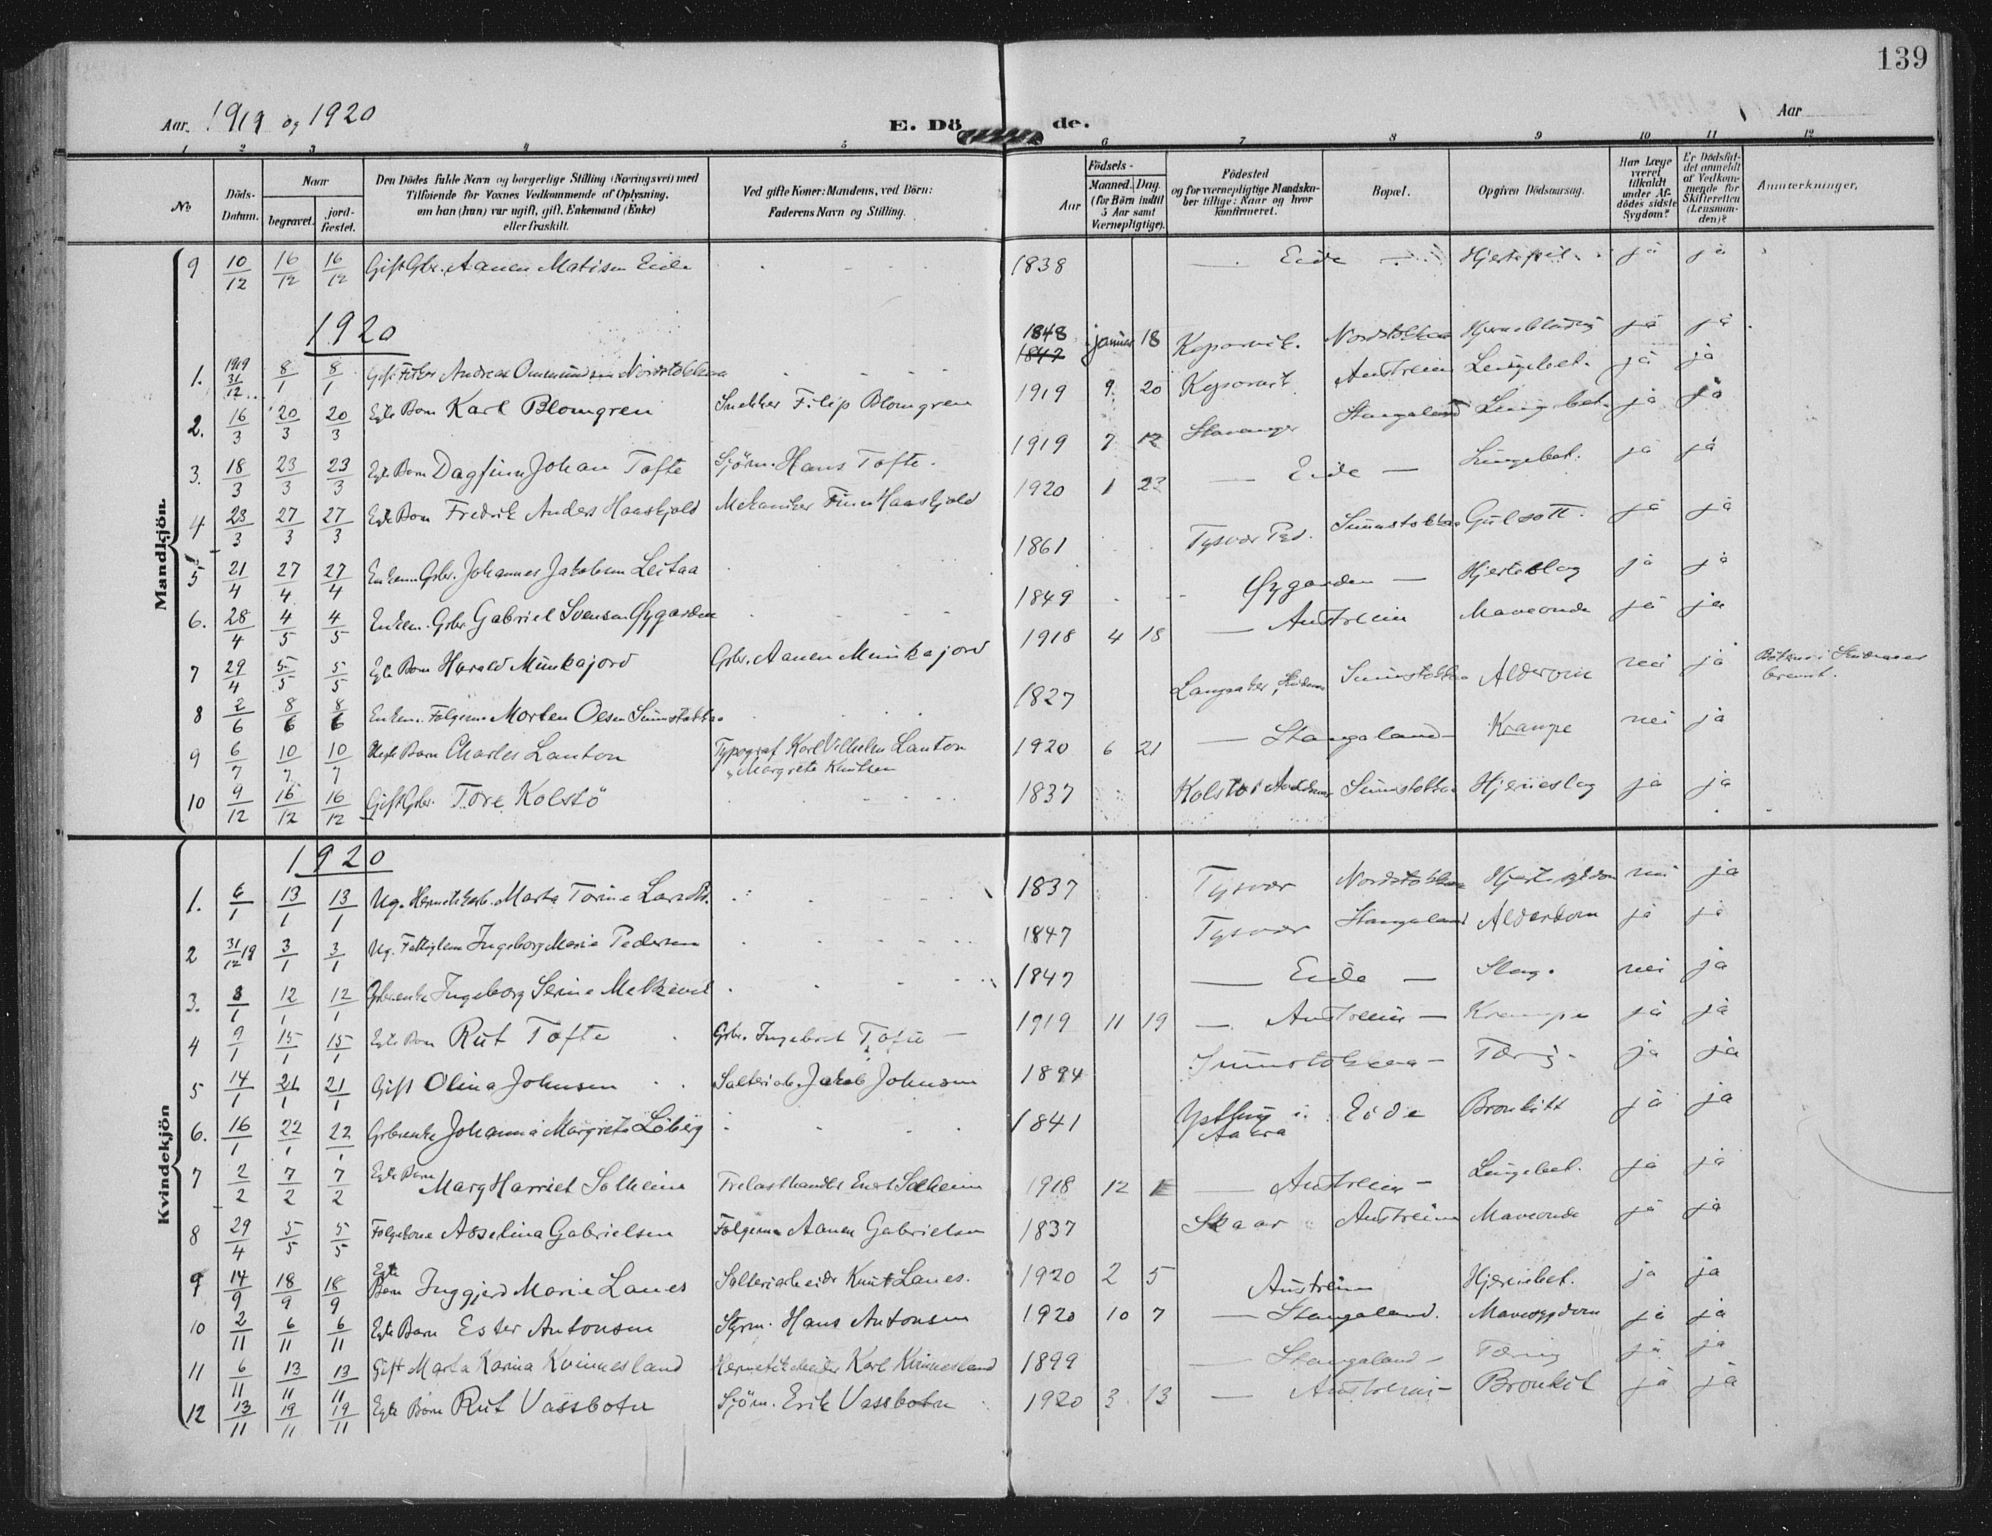 139
Aar. 1919 og 1920 E. Döde. Aar
1 2 3 4 5 6 7 8 9 10 11 12
No. Döds-Datum. Naar begravet. jordfæstet. Den Dödes fulde Navn og borgerlige Stilling (Næringsvei) med Tilföiende for Voxnes Vedkommende af Oplysning, om han (hun) var ugift, gift, Enkemand (Enke) eller fraskilt. Ved gifte Koner: Mandens, ved Börn: Faderens Navn og Stilling. Födsels- Aar Maaned. Dag. (for Börn indtil 5 Aar samt Værnepligtige). Födested og for værnepligtige Mandskaber tillige: Naar og hvor konfirmeret. Bopæl. Opgiven Dödsaarsag. Har Læge været tilkaldt under Afdödes sidste Sygdom? Er Dödsfaldet anmeldt af Vedkommende for Skifteretten (Lensmanden)? Anmærkninger.
Mandkjön.
9 10/12 16/12 16/12 Gift Gbr. Aanen Matisen Eide 1838 — Eide — ja ja
1920
1. 1919 31/12 8/1 8/1 Gift Andreas Ommundsen Nordstokkaa 1848 1847 januar 18 Kopervik. Nordstokkaa ja ja
2. 16/3 20/3 20/3 Egte Barn Karl Blomgren Snekker Filip Blomgren 1919 9 20 Kopervik Austreim Lungebet. ja ja
3. 18/3 23/3 23/3 Egte Barn Dagfinn Johan Tofte Sjöm. Hans Tofte. 1919 7 12 Stavanger Stangeland Lungebet. ja ja
4 23/3 27/3 27/3 Egte Barn Fredrik Anders Haaskjold Mekaniker Finn Haaskjold 1920 1 23 — Eide — Lungebet. ja ja
5 21/4 27/4 27/4 Enkem. Gbr. Johannes Jakobsen Leitaa 1861 Tysvær Sunnstokkaa Gulsott. ja ja
6. 28/4 4/5 4/5 Enkem. Gbr. Gabriel Svensen Øygarden 1849 Øygarden — Hjerteslag ja ja
7 29/4 5/5 5/5 Egte Barn Harald Munkajord Gbr. Aanen Munkajord 1918 4 18 — Austreim Maveonde ja ja
8 2/6 8/6 8/6 Enkem. Folgem. Morten Olsen Sunnstokkaa 1827 Sunnstokkaa Alderdom nei ja
9 6/7 10/7 10/7 Barn Charles Lanton Typograf Karl Vilhelm Lanton
Margrete Knutsen 1920 6 21 — Stangeland Krampe nei ja
10 9/12 16/12 16/12 Gift Gbr. Tore Kolstö 1837 Kolstö Sunnstokkaa Hjerneslag ja ja
Kvindekjön
1920
1. 6/1 13/1 13/1 Ug. Marta Torine 1837 Tysvær Nordstokkaa Hjertesykdom nei ja
2 31/12 19 3/1 3/1 Ug. Fattiglem Ingeborg Marie Pedersen 1847 Tysvær Stangeland Alderdom ja ja
3. 8/1 12/1 12/1 Gbrenke Ingeborg Serine Melkevik 1847 — Eide — Slag. nei ja
4 9/1 15/1 15/1 Egte Barn Rut Tofte Gbr. Ingebret Tofte — 1919 11 19 — Austreim — Krampe ja ja
5 14/1 21/1 21/1 Gift Olina Johnsen Jakob Johnsen 1894 Sunnstokkaa — Tæring ja ja
6. 16/1 22/1 22/1 Gbrenke Johanna Margrete Löberg 1841 i Aakra Eide Bronkitt ja ja
7 2/2 7/2 7/2 Egte Barn Mary Harriet Solheim Trelasthandl. Solheim 1918 12 1 — Austreim — Lungebet. ja ja
8 29/4 5/5 5/5 Folgekone Asselina Gabrielsen Folgem. Aanen Gabrielsen 1837 Skaar Austreim Maveonde ja ja
9 14/9 18/9 18/9 Egte Barn Inggjerd Marie Lanes Knut Lanes. 1920 2 5 Austreim Hjernebet. ja ja
10 2/11 6/11 6/11 Egte Barn Ester Antonsen Styrm. Hans Antonsen 1920 10 7 — Stangeland. Mavesygdom ja ja
11 6/11 13/11 13/11 Gift Marta Karina Kvinnesland Karl Kvinnesland 1899 — Stangeland — Tæring ja ja
12 13/11 19/11 19/11 Egte Barn Rut Vassbotn Sjöm. Erik Vassbotn 1920 3 13 — Austreim — Bronkit ja ja